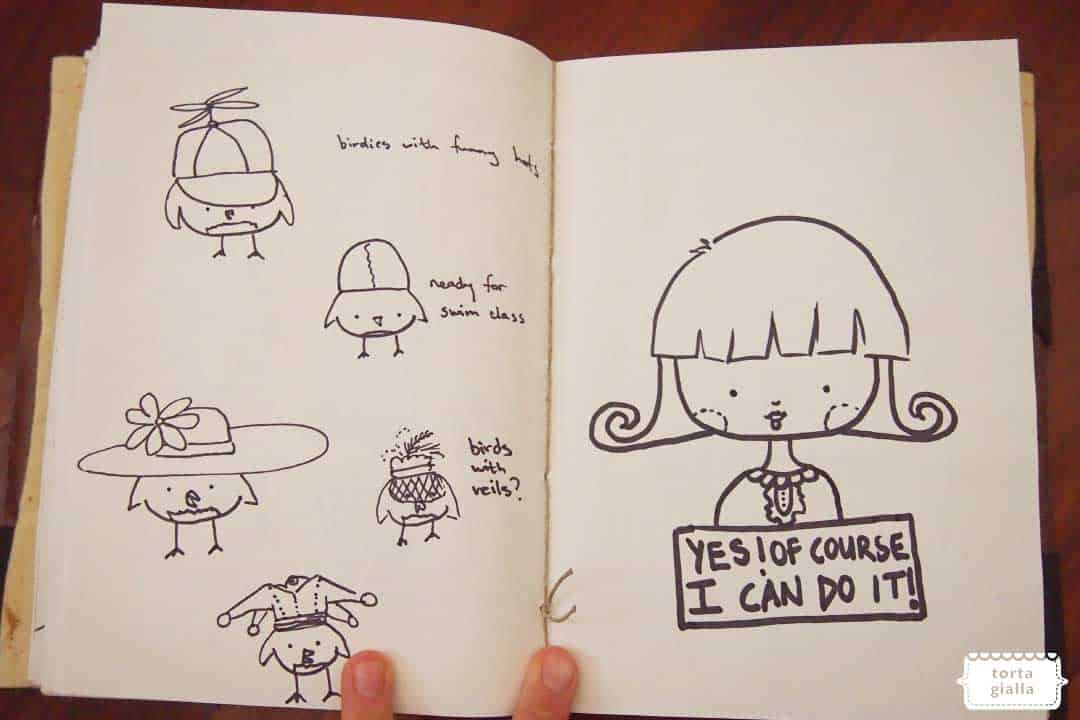 birdies with funny hats
ready for
swim class
birds
with
veils?
YES! OF COURSE
I CAN DO IT!
torta
gialla